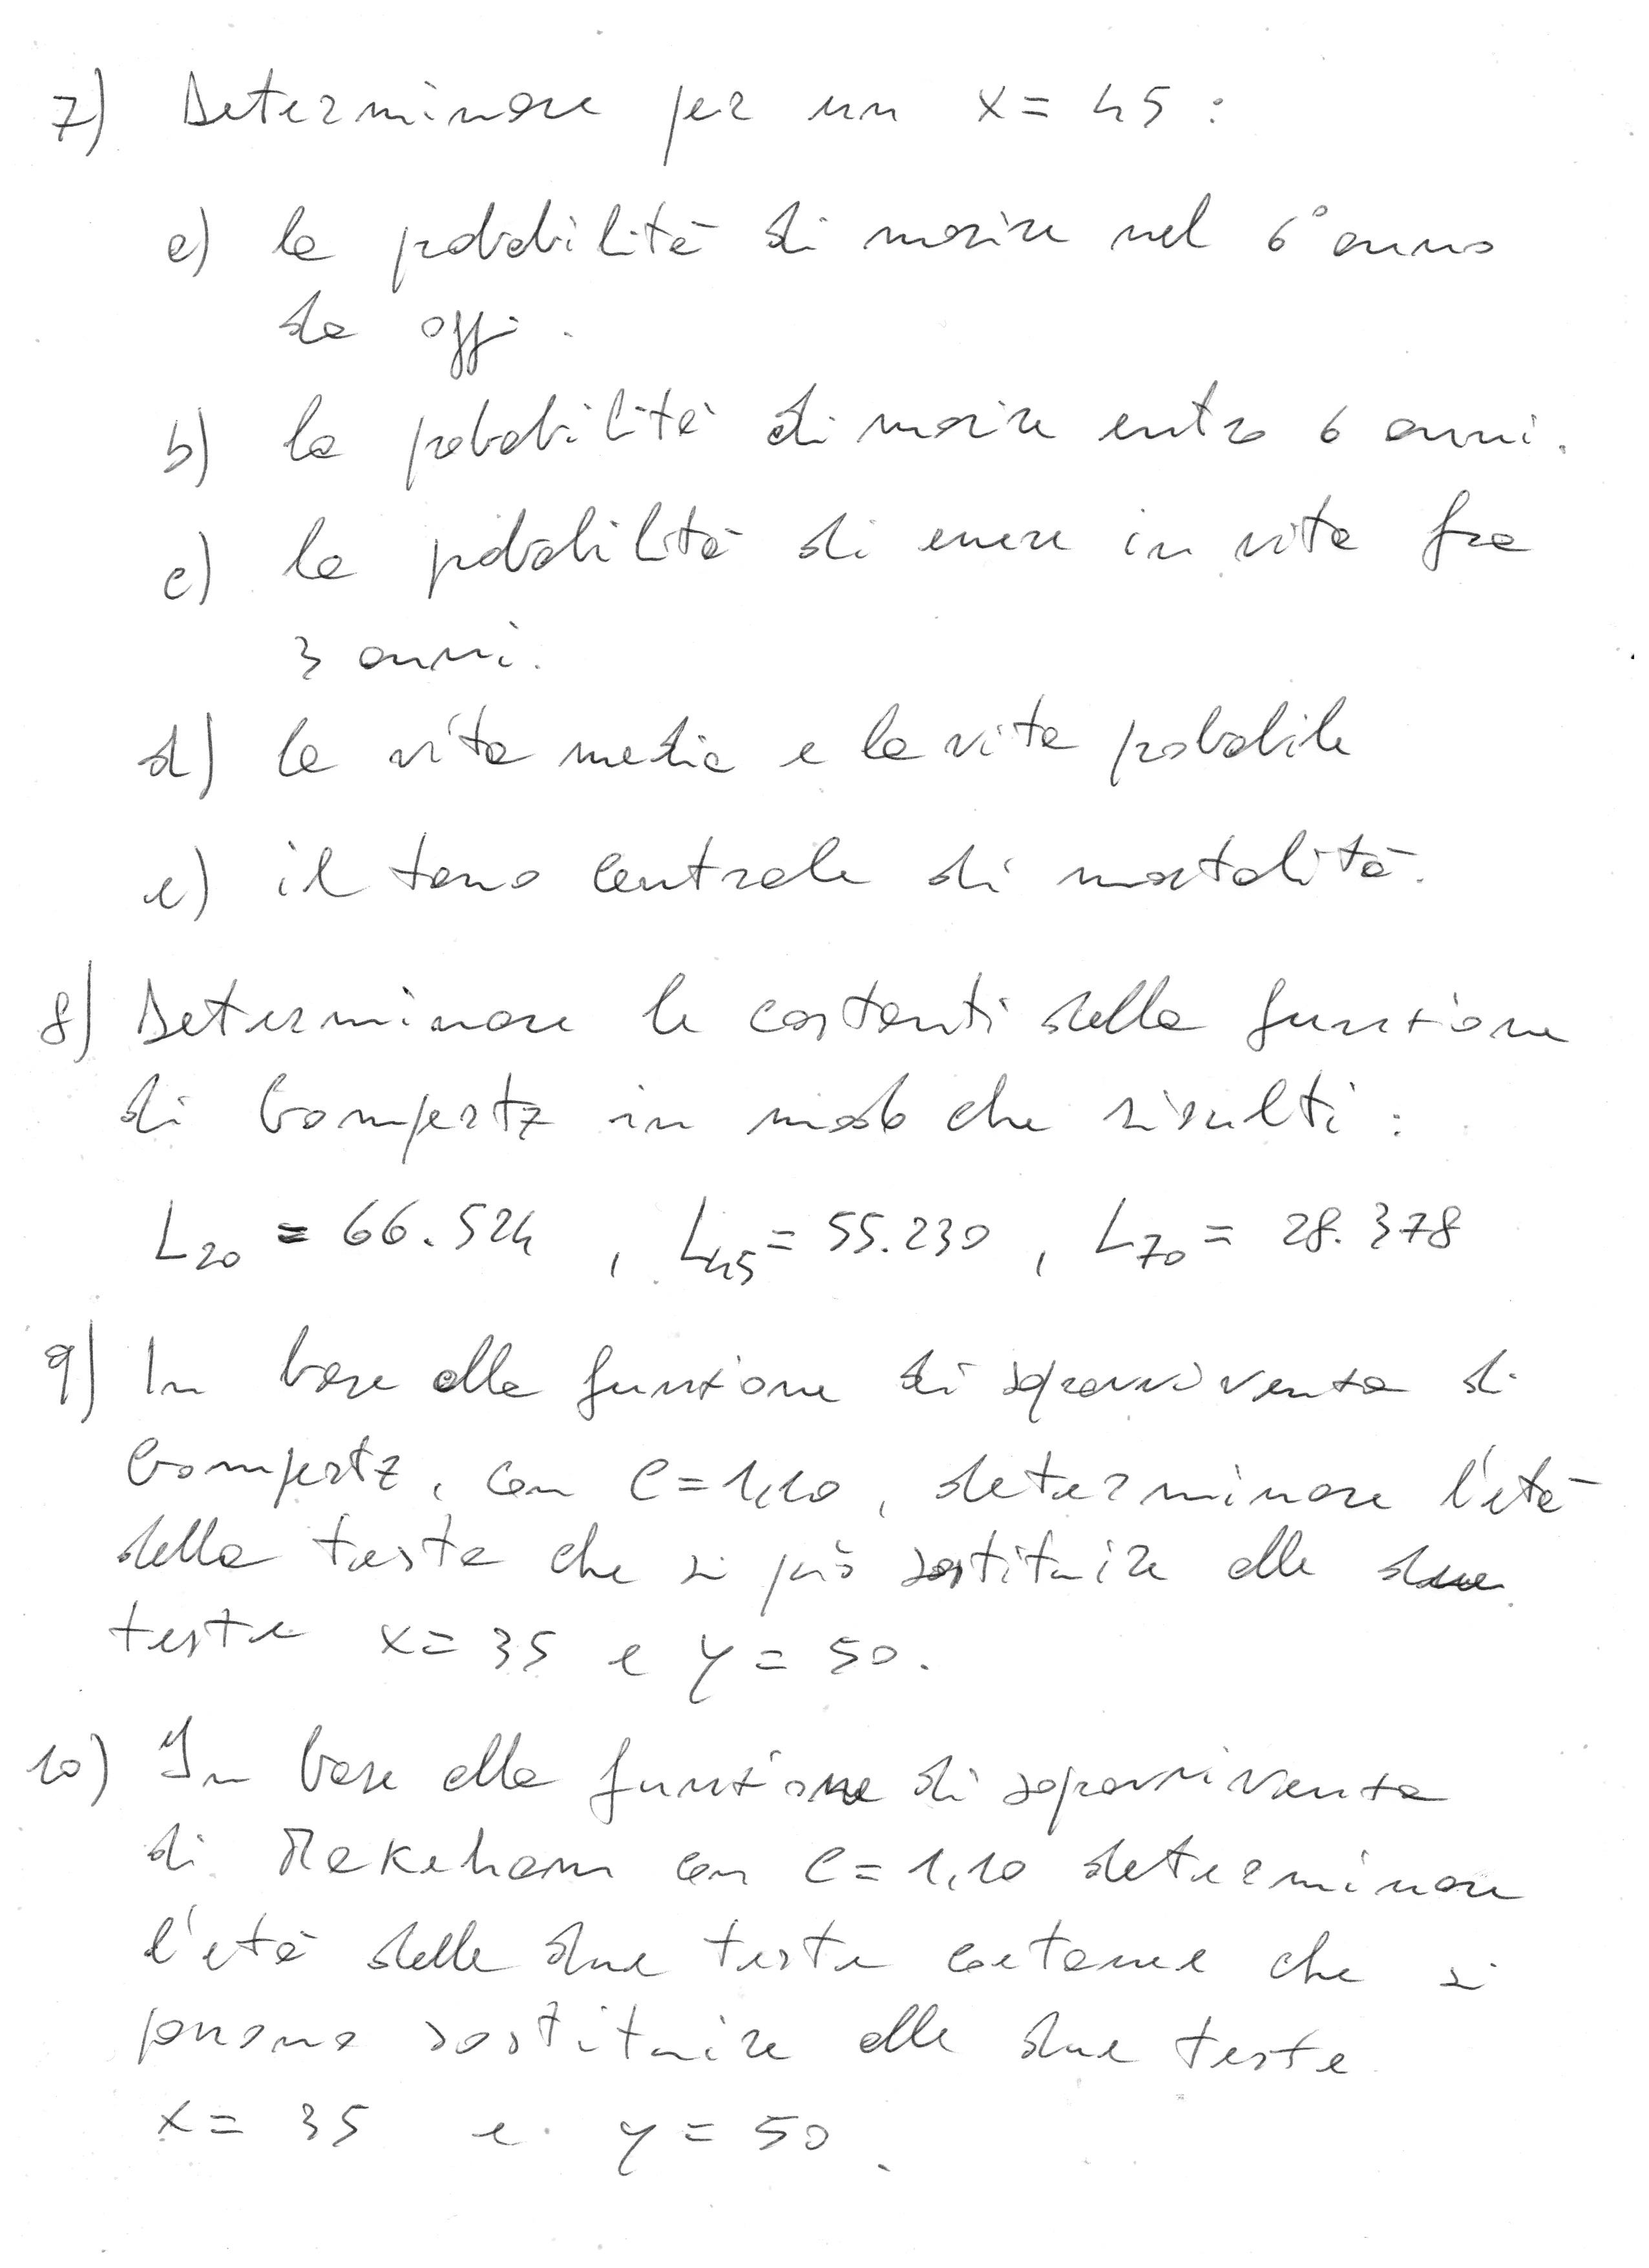 7) Determinare per un x = 45 :
a) la probabilità di morire nel 6° anno
da oggi.
b) la probabilità di morire entro 6 anni.
c) la probabilità di essere in vita fra
3 anni.
d) la vita media e la vita probabile
e) il tasso centrale di mortalità.
8) Determinare le costanti della funzione
di Gompertz in modo che risulti :
L20 = 66.524 , L45 = 55.230 , L70 = 28.378
9) In base alla funzione di sopravvivenza di
Gompertz, con C = 1,10, determinare l'età
della testa che si può sostituire alle due
teste x = 35 e y = 50.
10) In base alla funzione di sopravvivenza
di Makeham con C = 1,10 determinare
l'età delle due teste coetanee che si
possono sostituire alle due teste
x = 35 e y = 50.